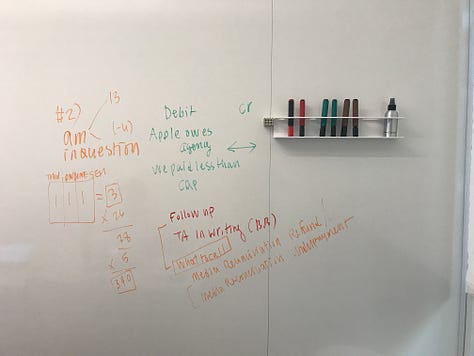 #2)
13
am (-4)
in question
1 1 1 = 3
x 26
78
x 5
390
Debit cr
Apple owes
agency
we paid less than
cap
Follow up
TA in writing (BB)
What to call
media Reconciliation Refund!
media Reconciliation underpayment